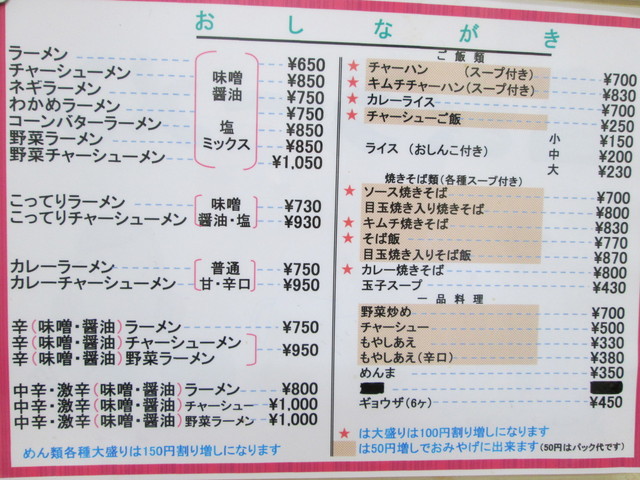 おしながき
ラーメン ¥650
チャーシューメン ¥850
ネギラーメン ¥750
わかめラーメン ¥750
コーンバターラーメン ¥850
野菜ラーメン ¥850
野菜チャーシューメン ¥1,050
味噌
醤油
塩
ミックス
こってりラーメン 味噌 ¥730
こってりチャーシューメン 醤油・塩 ¥930
カレーラーメン 普通 ¥750
カレーチャーシューメン 甘・辛口 ¥950
辛(味噌・醤油)ラーメン ¥750
辛(味噌・醤油)チャーシューメン
辛(味噌・醤油)野菜ラーメン ¥950
中辛・激辛(味噌・醤油)ラーメン ¥800
中辛・激辛(味噌・醤油)チャーシュー ¥1,000
中辛・激辛(味噌・醤油)野菜ラーメン ¥1,000
めん類各種大盛りは150円割り増しになります
ご飯類
★ チャーハン (スープ付き) ¥700
★ キムチチャーハン(スープ付き) ¥830
★ カレーライス ¥700
★ チャーシューご飯 ¥250
ライス (おしんこ付き) 小 ¥150
中 ¥200
大 ¥230
焼きそば類(各種スープ付き)
★ ソース焼きそば ¥700
目玉焼き入り焼きそば ¥800
★ キムチ焼きそば ¥830
★ そば飯 ¥770
目玉焼き入りそば飯 ¥870
★ カレー焼きそば ¥800
玉子スープ ¥430
一品料理
野菜炒め ¥700
チャーシュー ¥500
もやしあえ ¥330
もやしあえ(辛口) ¥380
めんま ¥350
ギョウザ(6ヶ) ¥450
★ は大盛りは100円割り増しになります
は50円増しでおみやげに出来ます(50円はパック代です)